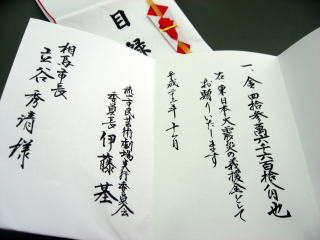 目録
一、金四拾参萬六千六百拾八円也
右 東日本大震災の義援金として
お贈りいたします
平成二十三年
市民芸術劇場実行委員会
委員長 伊藤 基
相馬市長
立谷 秀清 様